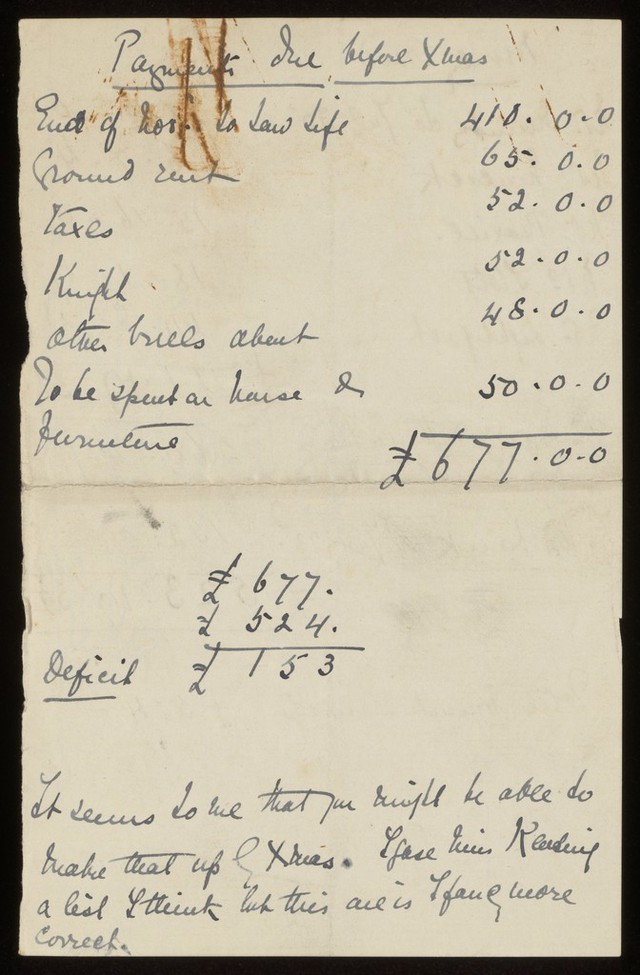 Payments due before Xmas
End of Nov. to Law Life 410.0.0
Ground rent 65.0.0
Taxes 52.0.0
Knight 52.0.0
Other bills about 48.0.0
To be spent on house & 50.0.0
furniture
£677.0.0
£677.
£524.
Deficit £153
It seems to me that you might be able to
make that up by Xmas. I gave Miss Reading
a list I think but this one is I fancy more
correct.